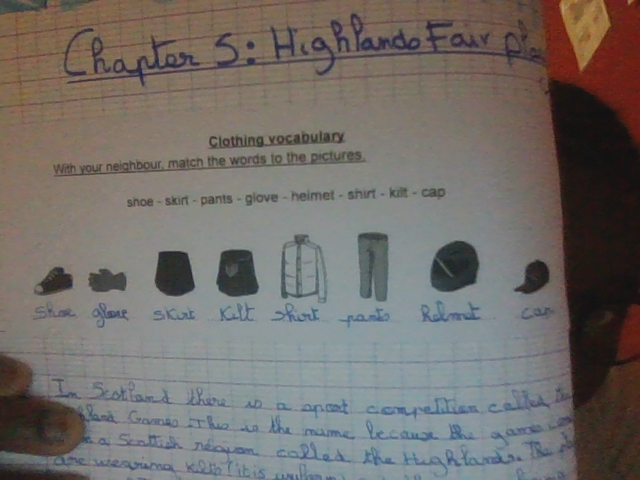 Chapter 5: Highlands Fair
Clothing vocabulary
With your neighbour, match the words to the pictures.
shoe - skirt - pants - glove - helmet - shirt - kilt - cap
shoe glove skirt Kilt shirt pants helmet cap
In Scotland there is a sport competition called
Games. This is the name because the games
a Scottish region called the Highlands. The
are wearing kilts (it is